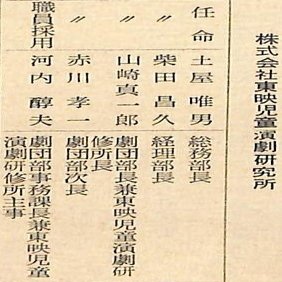 株式会社東映児童演劇研究所
任命 土屋唯男 総務部長
〃 柴田昌久 経理部長
〃 山崎真一郎 劇団部長兼東映児童演劇研
修所長
〃 赤川孝一 劇団部次長
職員採用 河内醇夫 劇団部事務課長兼東映児童
演劇研修所主事